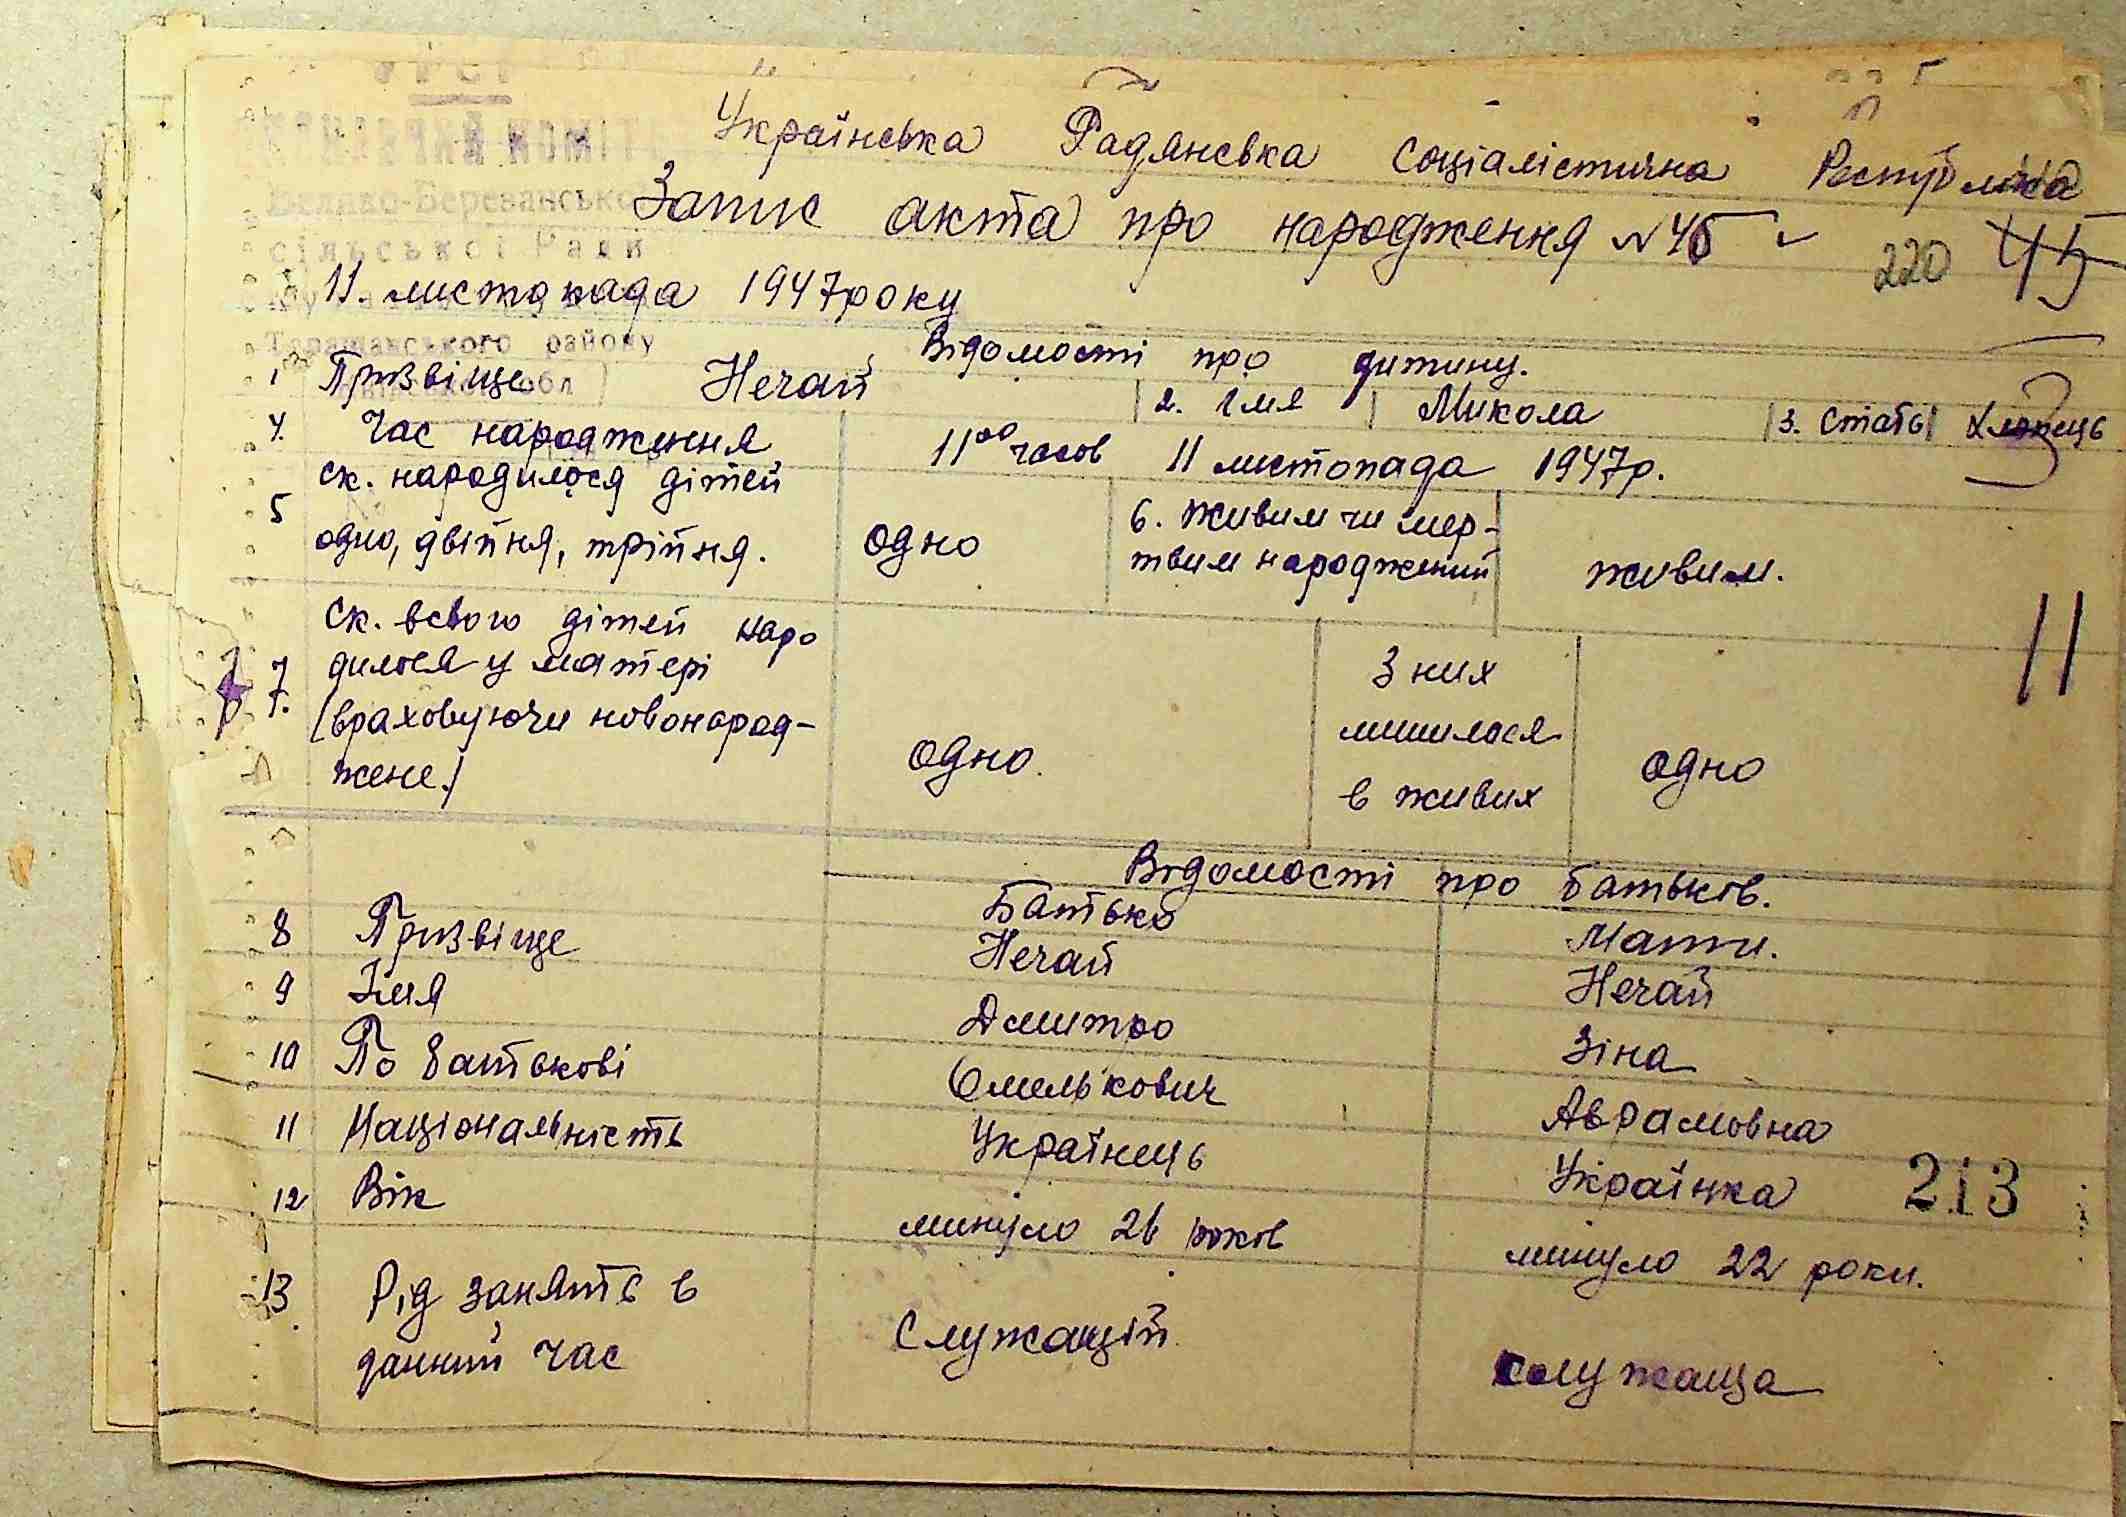 УРСР
Українська Радянська Соціалістична Республіка
сільської Ради
Запис акта про народження №45 220 45
11. листопада 1947року
Таращанського району
Відомості про дитину.
1 Призвіще Нечай 2. Імя Микола 3. Стать Хлопець
4. Час народження 11⁰⁰ часов 11 листопада 1947р.
5 ск. народилося дітей
одно, двійня, трійня. одно 6. Живим чи мер-
твим народжений живим.
11
7. Ск. всього дітей наро
дилося у матері
(враховуючи новонарод-
жене.) одно. З них
лишилося
в живих одно
Відомості про батьков.
Батько Мати.
8 Призвіще Нечай Нечай
9 Імя Дмитро Зіна
10 По батькові Омелькович Аврамовна
11 Національність Українець Українка 213
12 Вік минуло 26 років минуло 22 роки.
13 Рід занять в
данний час Служащій. служаща